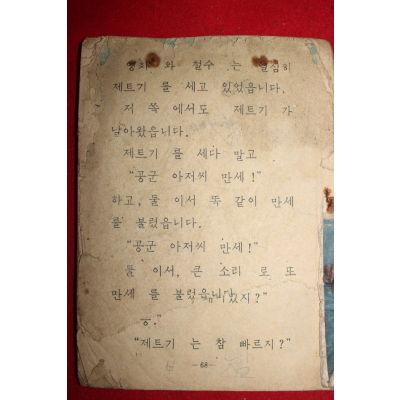 와 철수 는 열심히
제트기 를 세고 있었읍니다.
저 쪽 에서도 제트기 가
날아왔읍니다.
제트기 를 세다 말고
"공군 아저씨 만세!"
하고, 둘 이서 똑 같이 만세
를 불렀읍니다.
"공군 아저씨 만세!"
둘 이서, 큰 소리 로 또
만세 를 불렀읍니다 있지?"
ㅎ."
"제트기 는 참 빠르지?"
—68—